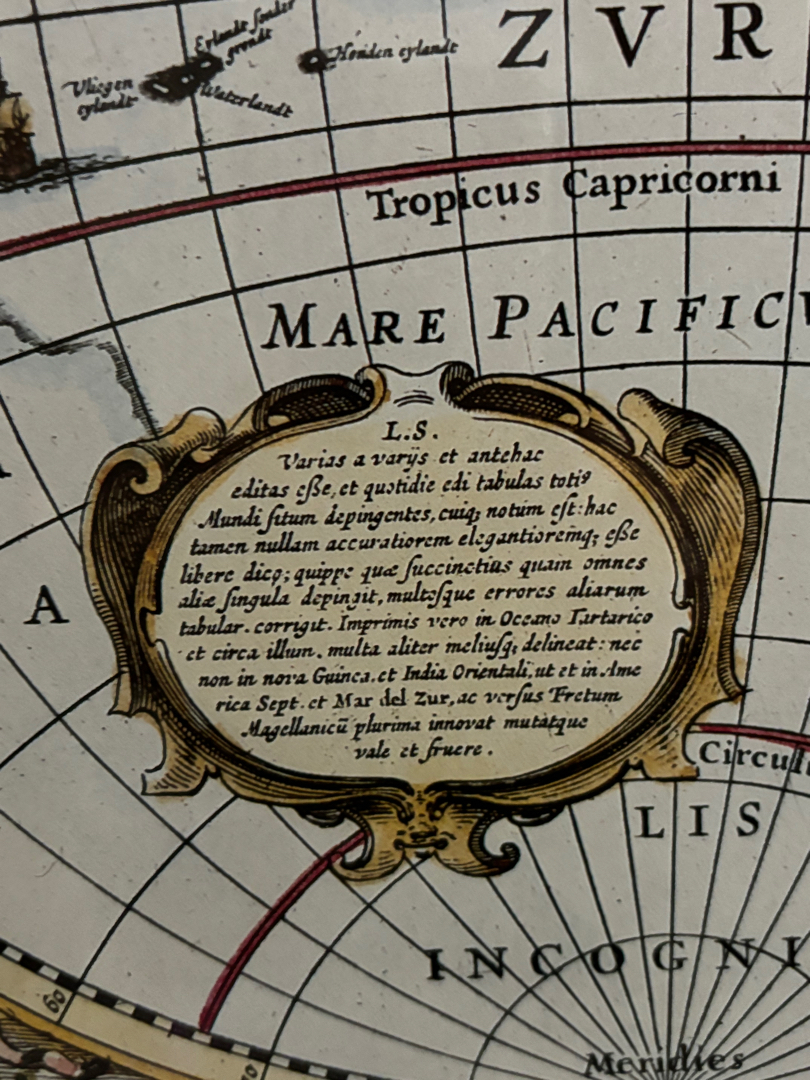 Eylandt sonder
grondt
Honden eylandt
Vliegen
eylandt
Waterlandt
ZVR
Tropicus Capricorni
MARE PACIFICV
L.S.
Varias a varijs et antehac
editas eſſe, et quotidie edi tabulas totiꝰ
Mundi ſitum depingentes, cuiqꝫ notum eſt: hac
tamen nullam accuratiorem elegantioremqꝫ eſſe
libere dico; quippe quæ ſuccinctius quam omnes
aliæ ſingula depingit, multoſque errores aliarum
tabular. corrigit. Imprimis vero in Oceano Tartarico
et circa illum. multa aliter meliuſqꝫ delineat: nec
non in nova Guinea. et India Orientali, ut et in Ame
rica Sept. et Mar del Zur, ac verſus Fretum
Magellanicū plurima innovat mutatque
vale et fruere.
A
Circul
LIS
INCOGNI
Meridies
60